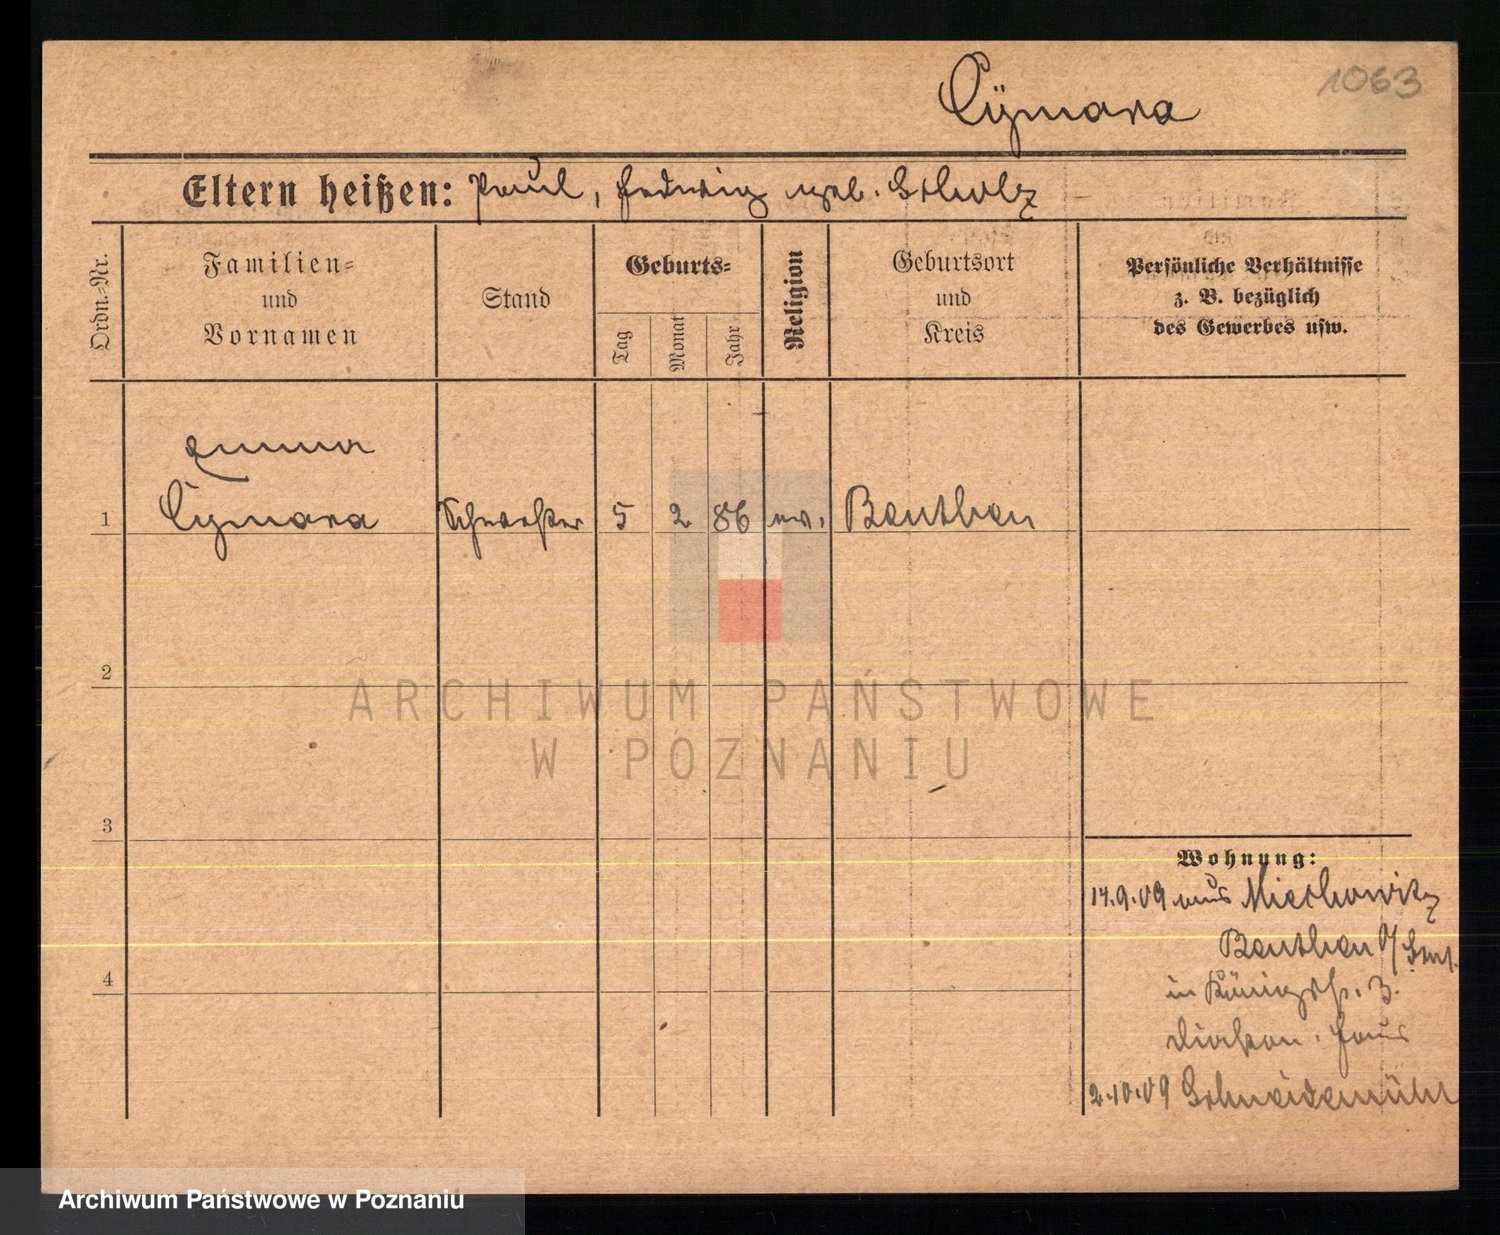 Cÿmara
1063
Eltern heißen: Paul, Hedwig geb. Scholz
Ordn.-Nr.
Familien-
und
Vornamen
Stand
Geburts-
Tag
Monat
Jahr
Religion
Geburtsort
und
Kreis
Persönliche Verhältnisse
z. B. bezüglich
des Gewerbes usw.
Emma
1 Cymara Schwester 5 2 86 ev. Beuthen
2
ARCHIWUM PAŃSTWOWE
W POZNANIU
3
Wohnung:
14.9.09 aus Miechowitz
Beuthen O/
4
in Königstr. 3.
Diakon. Haus
2.10.09 Schneidemühl
Archiwum Państwowe w Poznaniu